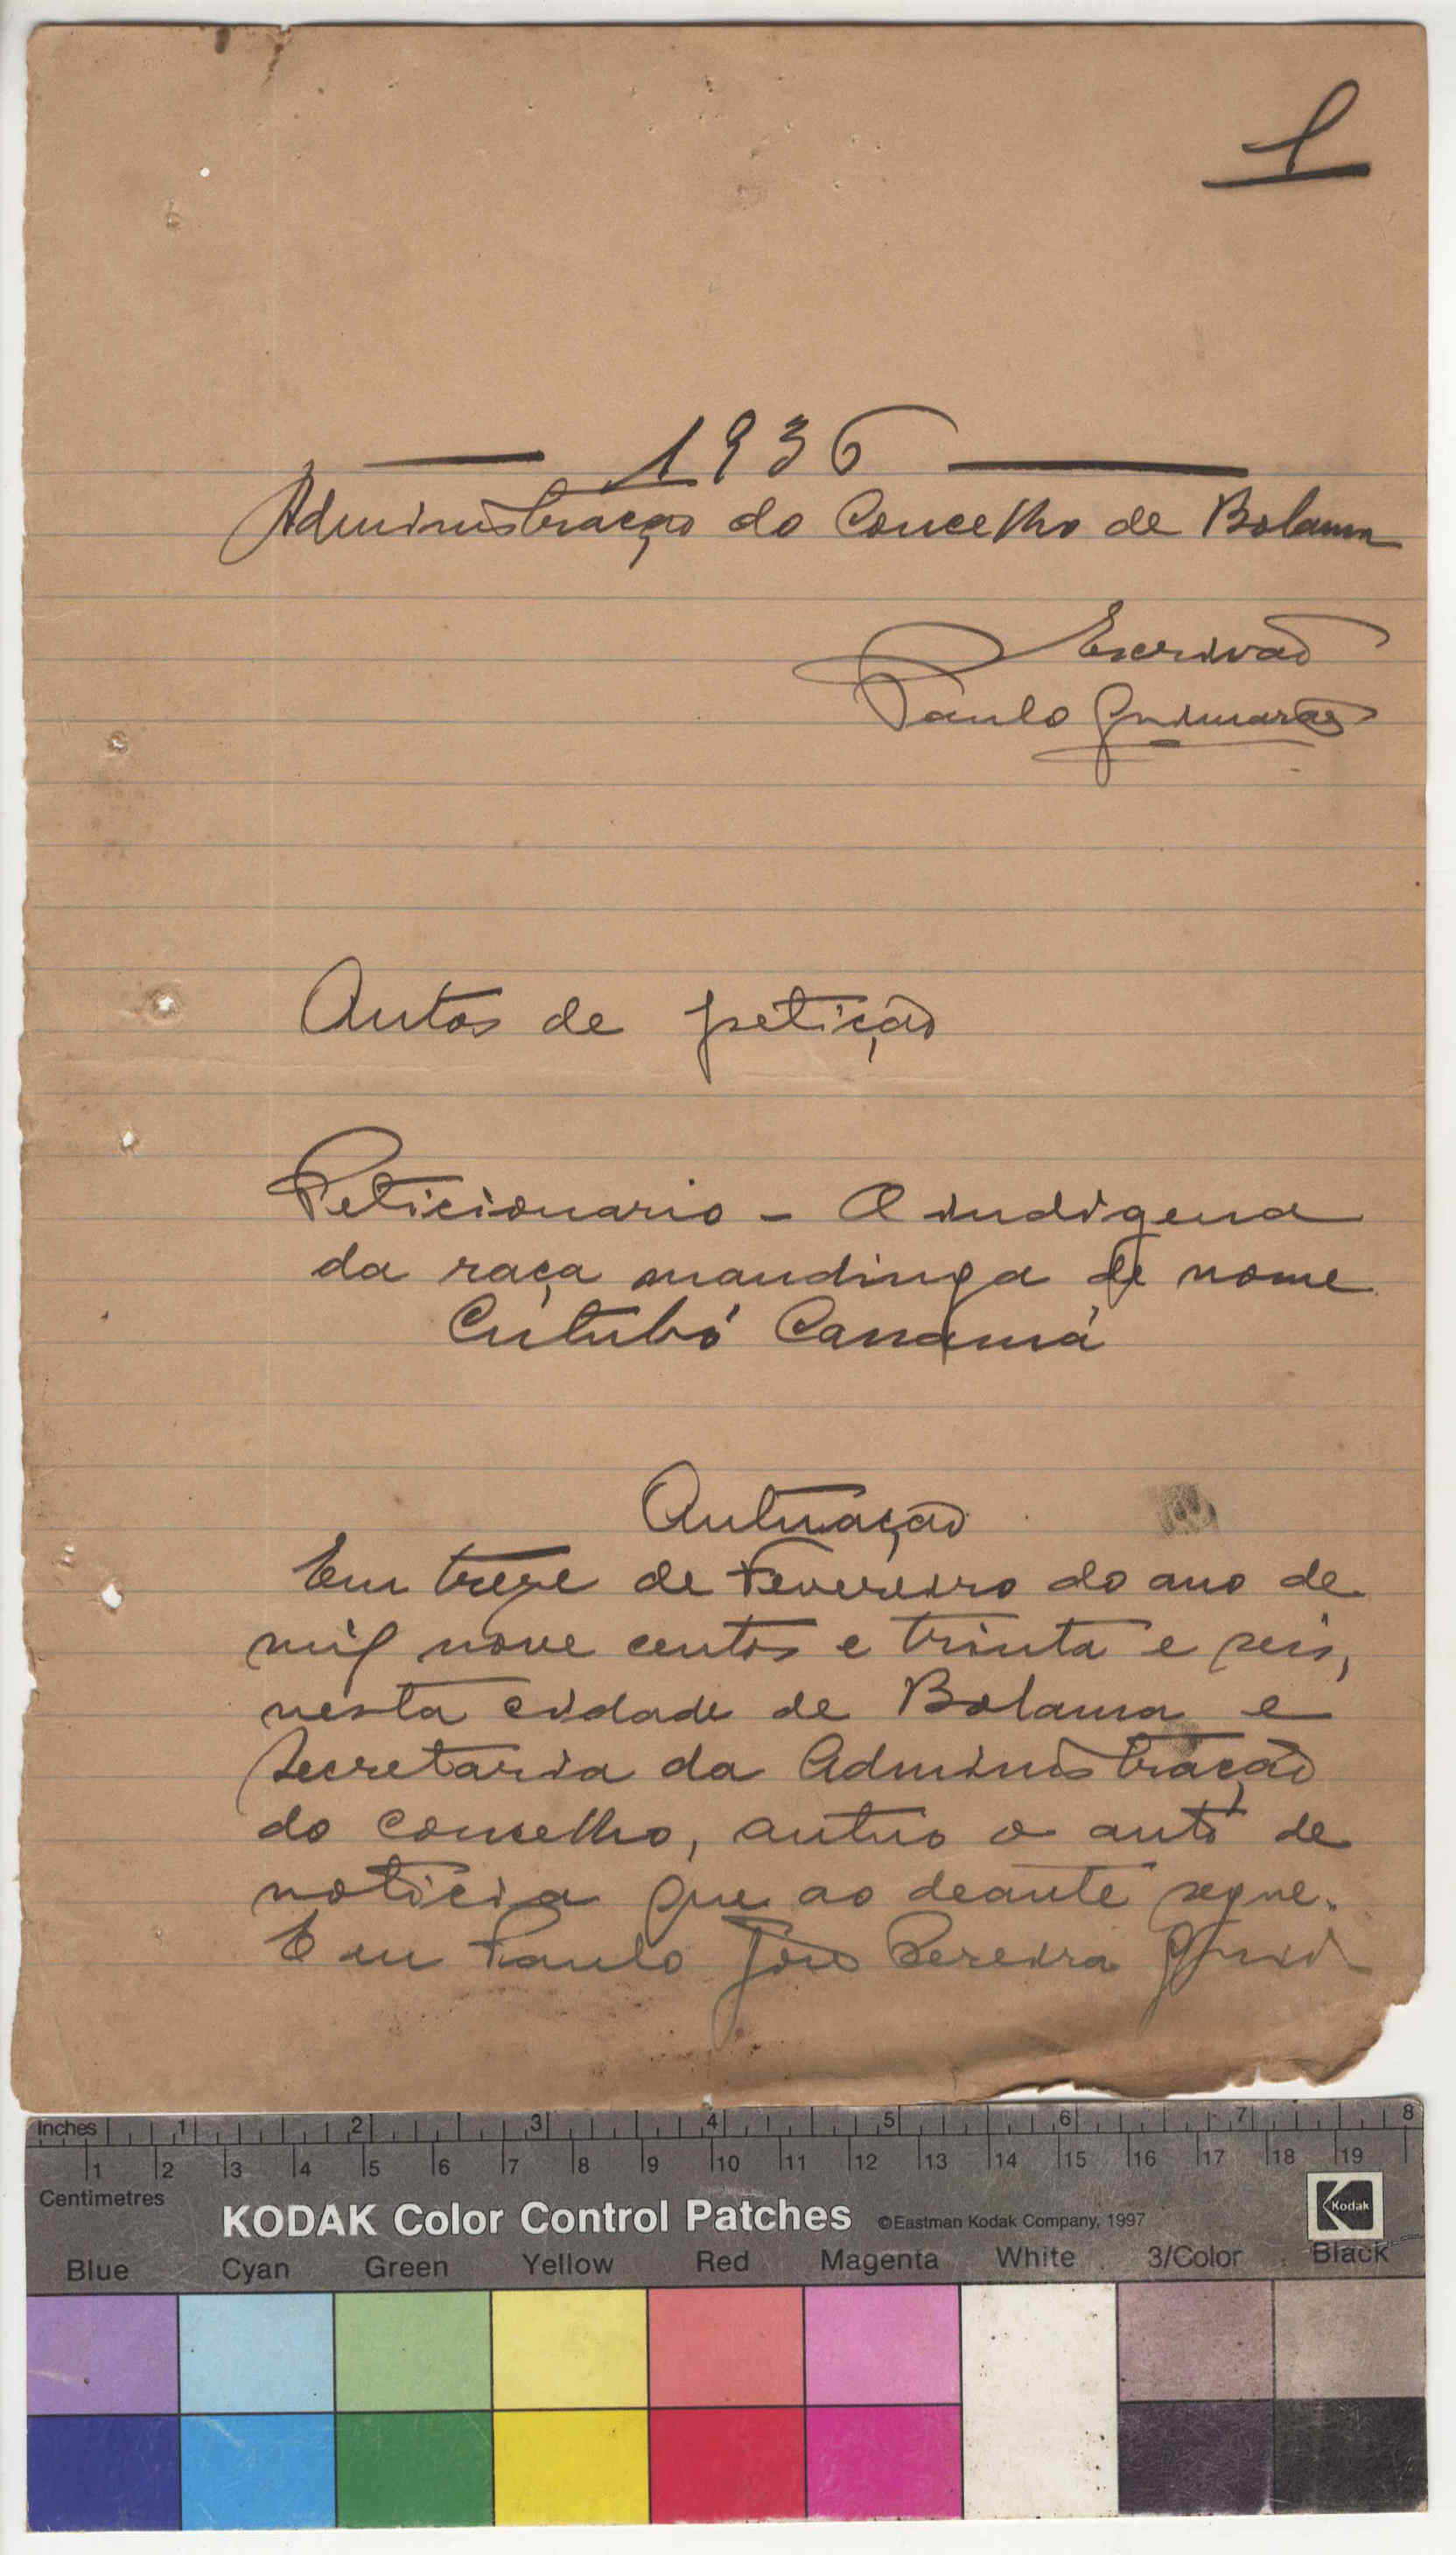 1
1936
Administração do Concelho de Bolama
Escrivão
Paulo Guimarães
Autos de petição
Peticionario - O indigena
da raça mandinga de nome
Cutubó Camará
Autuação
Em treze de Fevereiro do ano de
mil nove centos e trinta e seis,
nesta cidade de Bolama e
Secretaria da Administração
do conselho, autuo o auto de
noticia que ao deante segue.
E eu Paulo José Pereira
Inches 1 2 3 4 5 6 7 8
1 2 3 4 5 6 7 8 9 10 11 12 13 14 15 16 17 18 19
Centimetres
KODAK Color Control Patches ©Eastman Kodak Company, 1997 Kodak
Blue Cyan Green Yellow Red Magenta White 3/Color Black